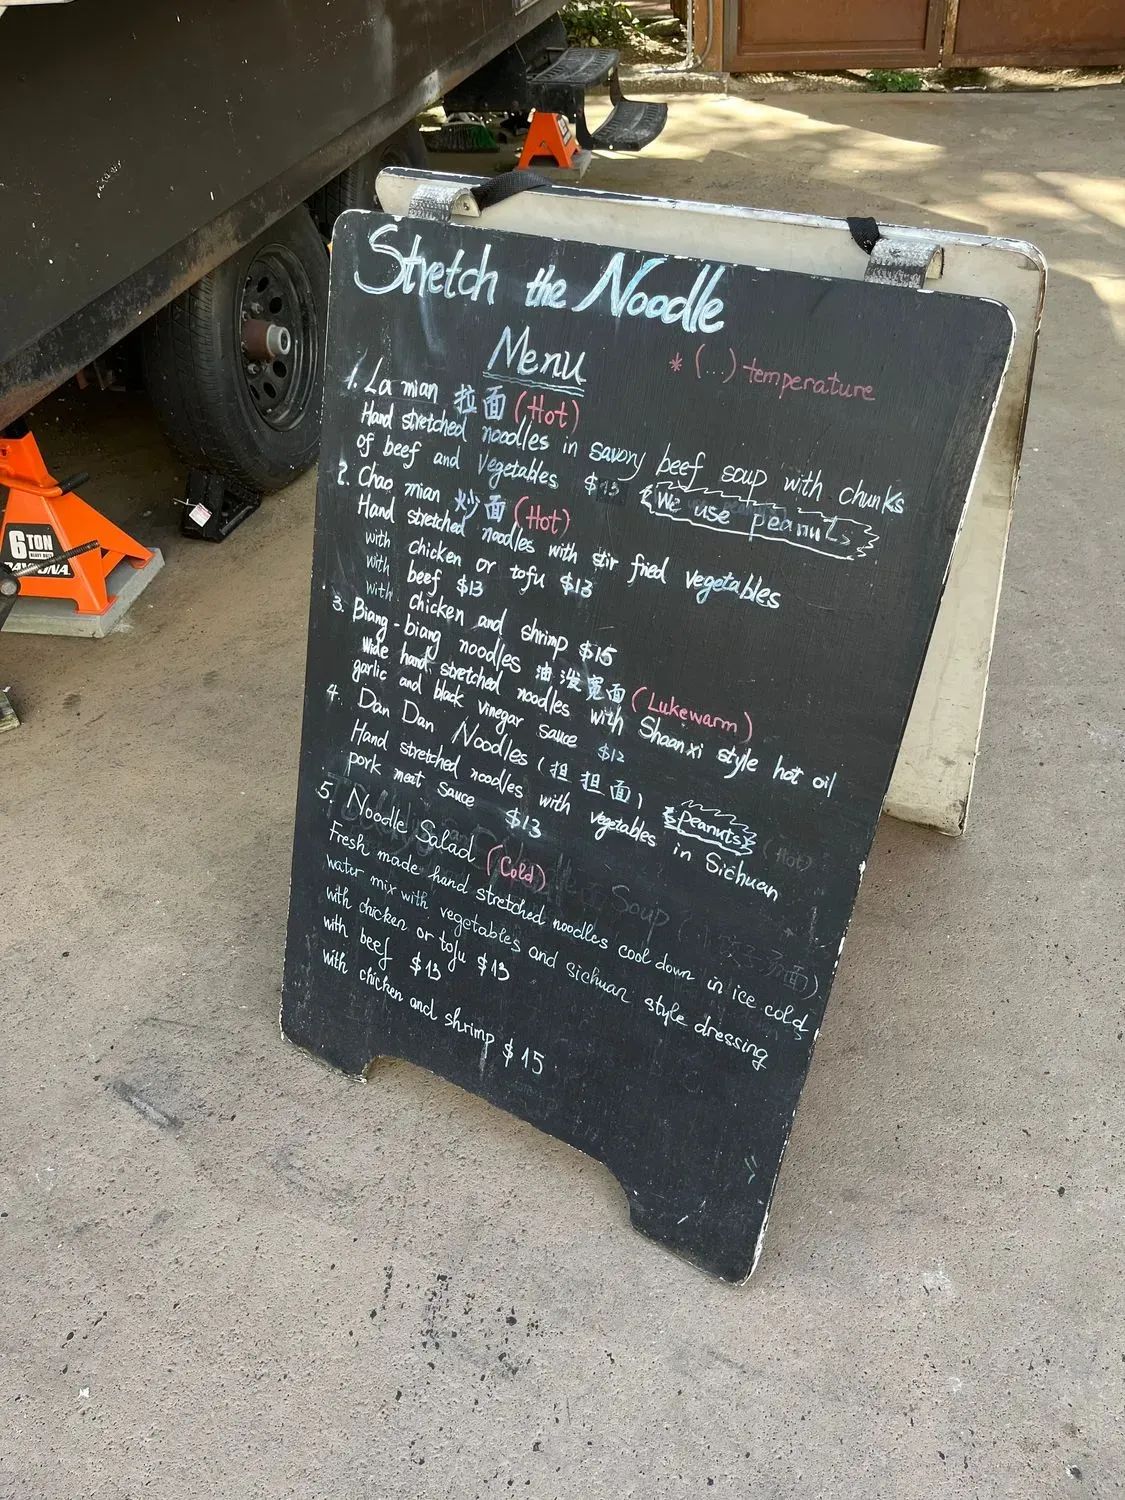 Stretch the Noodle
Menu
* (...) temperature
1. La mian 拉面 (Hot)
Hand stretched noodles in savory beef soup with chunks
of beef and Vegetables $13
We use peanuts
2. Chao mian 炒面 (Hot)
Hand stretched noodles with stir fried vegetables
with chicken or tofu $13
with beef $13
with chicken and shrimp $15
3. Biang-biang noodles 油泼宽面 (Lukewarm)
Wide hand stretched noodles with Shaanxi style hot oil
garlic and black vinegar sauce $12
4. Dan Dan Noodles (担担面) peanuts (Hot)
Hand stretched noodles with vegetables in Sichuan
pork meat sauce $13
5. Noodle Salad (Cold)
Fresh made hand stretched noodles cool down in ice cold
water mix with vegetables and sichuan style dressing
with chicken or tofu $13
with beef $13
with chicken and shrimp $15
Soup
6 TON
HEAVY DUTY
DAYTONA